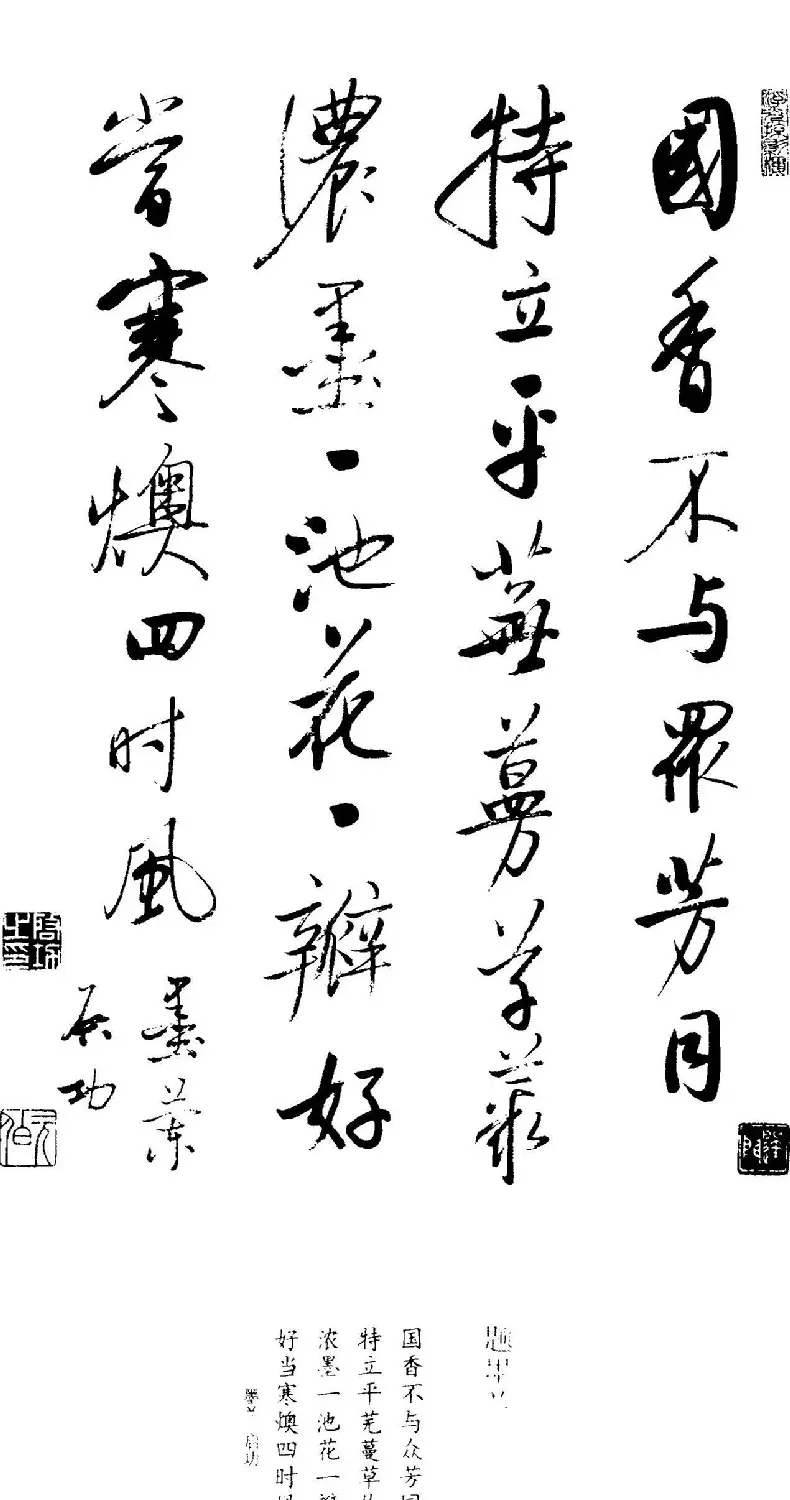 國香不与眾芳同
特立平蕪蔓草叢
濃墨一池花一瓣好
當寒燠四时風
墨蘭
启功
啟功之印
元白
题墨
国香不与众芳
特立平芜蔓草
浓墨一池花一
好当寒燠四时
启功